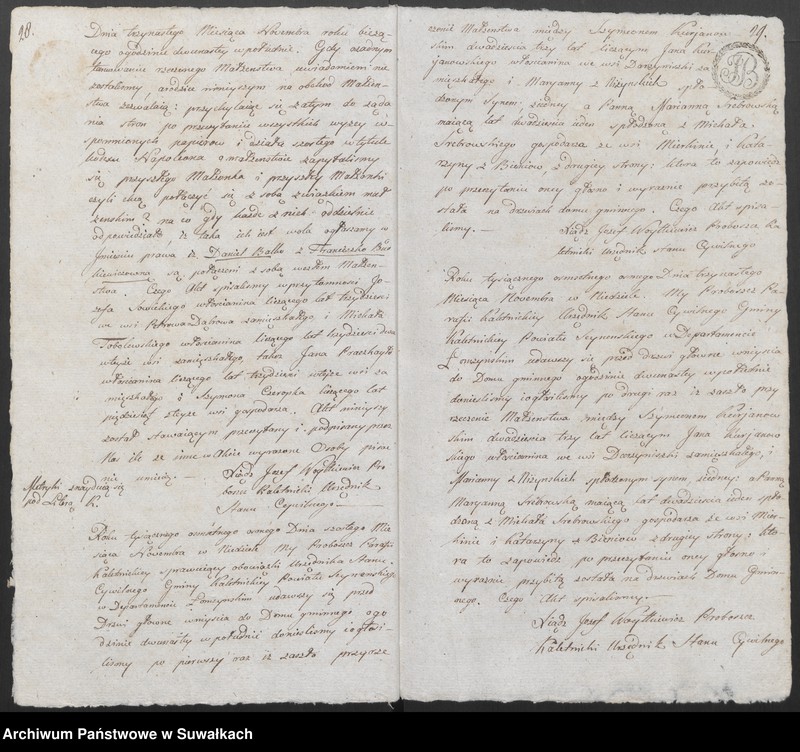 28.
Dnia trzynastego Miesiąca Novembra roku bieżą-
cego ogodzinie dwunastey w południe. Gdy
tamowaniu rzeczonego Małżenstwa uwiadomieni nie
zostaliśmy, a ninieyszym na obchod Małżen-
stwa zezwalaią; przychylaiąc się zatym do żąda
nia stron po przeczytaniu wszystkich wyżey w-
spomnionych papierow i działu szostego w tytule
kodexu Napoleona o małżenstwie zapytaliśmy
się przyszłego Małżonka i przyszłey Małżonki
czyli chcą połączyć się z sobą związkiem mał
żenskim? na co gdy każde z nich oddzielnie
odpowiedziało, iż taka ich iest wola ogłaszamy w
Jmieniu prawa iż Daniel Balko z Franciszką
są połączeni z sobą węzłem Małżen-
stwa. Czego Akt spisaliśmy w przytomnosci Jo-
zefa Sawickiego włoscianina liczącego lat trzydziesci
we wsi Dąbrowa zamieszkałego, i Michała
Sobolewskiego włoscianina liczącego lat trzydziesci dwa
wteyże wsi zamieszkałego, także Jana
włoscianina liczącego lat trzydziesci wteyże wsi za
mieszkałego i Szymona liczącego lat
pięćdziesiąt zteyże wsi gospodarza. Akt ninieyszy
został stawaiącym przeczytany i podpisany przez
Nas ile że inne w Akcie wyrażone Osoby pisać
nie umieią. – Xiądz Jozef Woytkiewicz Pro
boszcz Kaletnicki Urzędnik
Stanu Cywilnego
Metryki znayduią się
pod Literą R.
Roku tysiącznego osmsetnego osmego Dnia szostego Mie
siąca Novembra w Niedziele. My Proboszcz Parafii
Kaletnickiey sprawuiący obowiąski Urzędnika Stanu
Cywilnego Gminy Kaletnickiey Powiatu Seynenskiego
w Departamencie Łomżynskim udawszy się przed
Drzwi głowne weniścia do Domu gminnego ogo
dzinie dwunastey w południe donieśliśmy i ogłosi-
liśmy po pierwszy raz iż zaszło przyrze
29.
czenie Małżenstwa między Szymonem Kurjanow
skim dwadziescia trzy lat liczącym Jana Kur
janowskiego włoscianina we wsi za
mieszkałego i Maryanny z spło
dzonym Synem; z iedney a Panną Maryanną Srebrowską
maiącą lat dwadziescia ieden spłodzoną z Michała
Srebrowskiego gospodarza ze wsi i Kata-
rzyny z z drugiey strony; ktora to zapowiedz
po przeczytaniu oney głosno i wyraznie przybitą zo-
stała na drzwiach domu gminnego. Czego Akt spisa-
liśmy. – Xiądz Jozef Woytkiewicz Proboszcz Ka
letnicki Urzędnik Stanu Cywilnego
Roku tysiącznego osmsetnego osmego Dnia trzynastego
Miesiąca Novembra w Niedziele. My Proboszcz Pa-
rafii Kaletnickiey Urzędnik Stanu Cywilnego Gminy
Kaletnickiey Powiatu Seynenskiego w Departamencie
Łomżynskim udawszy się przed drzwi głowne weniścia
do Domu gminnego ogodzinie dwunastey w południe
donieśliśmy i ogłosiliśmy po drugi raz iż zaszło przy
rzeczenie Małżenstwa między Szymonem Kurjanow
skim dwadziescia trzy lat liczącym Jana Kurjanow
skiego włoscianina we wsi zamieszkałego, i
Maryanny z spłodzonym synem z iedney; a Panną
Maryanną Srebrowską maiącą lat dwadziescia ieden spło
dzoną z Michała Srebrowskiego gospodarza ze wsi
i Katarzyny z z drugiey strony; kto-
ra to zapowiedz po przeczytaniu oney głosno i
wyraznie przybitą została na drzwiach Domu Gmin-
nego. Czego Akt spisaliśmy. –
Xiądz Jozef Woytkiewicz Proboszcz
Kaletnicki Urzędnik Stanu Cywilnego
Archiwum Państwowe w Suwałkach